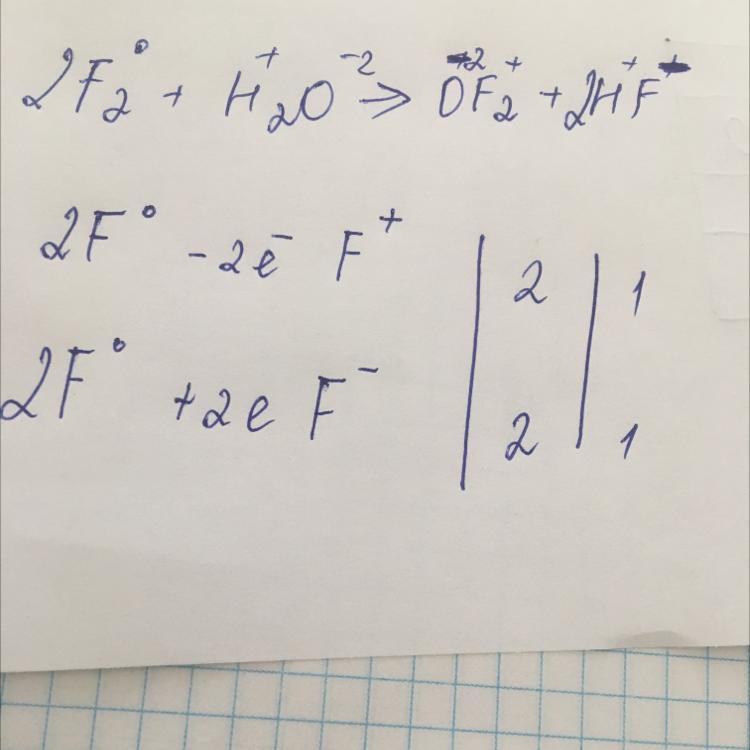 2F₂⁰ + H₂⁺O⁻² → O⁻²F₂⁺ + 2H⁺F⁻
2F⁰ -2e⁻ F⁺ | 2 | 1
2F⁰ +2e F⁻ | 2 | 1